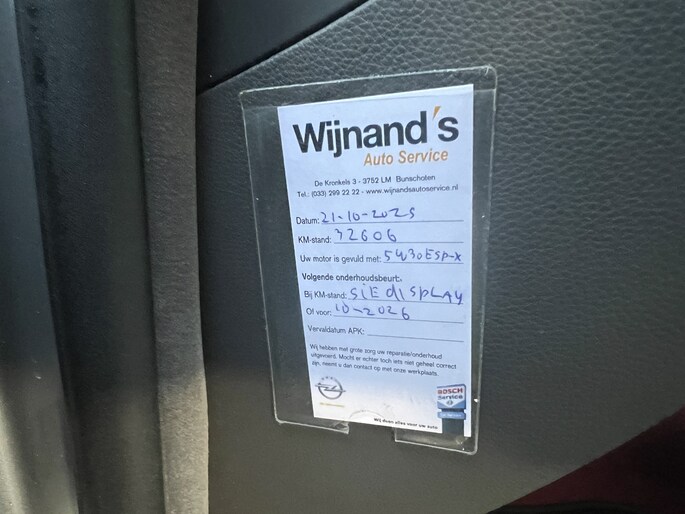 Wijnand's
Auto Service
De Kronkels 3 - 3752 LM Bunschoten
Tel.: (033) 299 22 22 - www.wijnandsautoservice.nl
Datum: 21-10-2025
KM-stand: 32606
Uw motor is gevuld met: 5W30ESP-X
Volgende onderhoudsbeurt:
Bij KM-stand: SIE dISPLAY
Of voor: 10-2026
Vervaldatum APK:
Wij hebben met grote zorg uw reparatie/onderhoud
uitgevoerd. Mocht er echter toch iets niet geheel correct
zijn, neemt u dan contact op met onze werkplaats.
BOSCH
Service
Wij doen alles voor uw auto